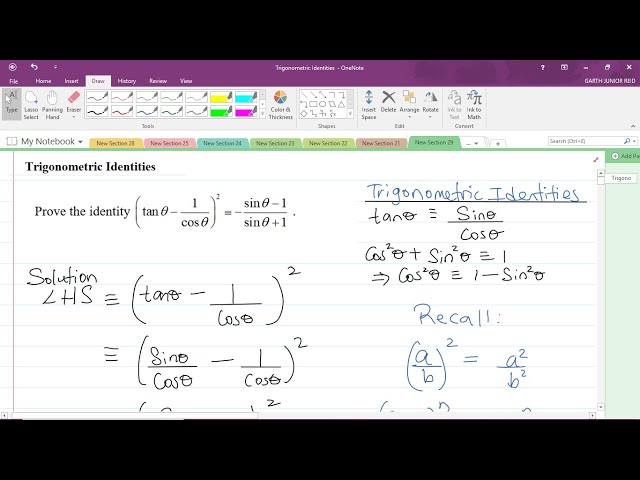 Trigonometric Identities - OneNote
GARTH JUNIOR REID
File Home Insert Draw History Review View
Type Lasso Select Panning Hand Eraser Color & Thickness Insert Space Delete Arrange Rotate Ink to Text Ink to Math
Tools Shapes Edit Convert
My Notebook New Section 28 New Section 25 New Section 24 New Section 23 New Section 22 New Section 21 New Section 29 ... + Search (Ctrl+E)
Add Pa
Trigono
Trigonometric Identities
Prove the identity (tan θ − 1/cos θ)² ≡ − (sin θ − 1)/(sin θ + 1) .
Solution
LHS ≡ (tanθ − 1/Cosθ)²
≡ (Sinθ/Cosθ − 1/Cosθ)²
Trigonometric Identities
tanθ ≡ Sinθ/Cosθ
Cos²θ + Sin²θ ≡ 1
⇒ Cos²θ ≡ 1 − Sin²θ
Recall:
(a/b)² = a²/b²